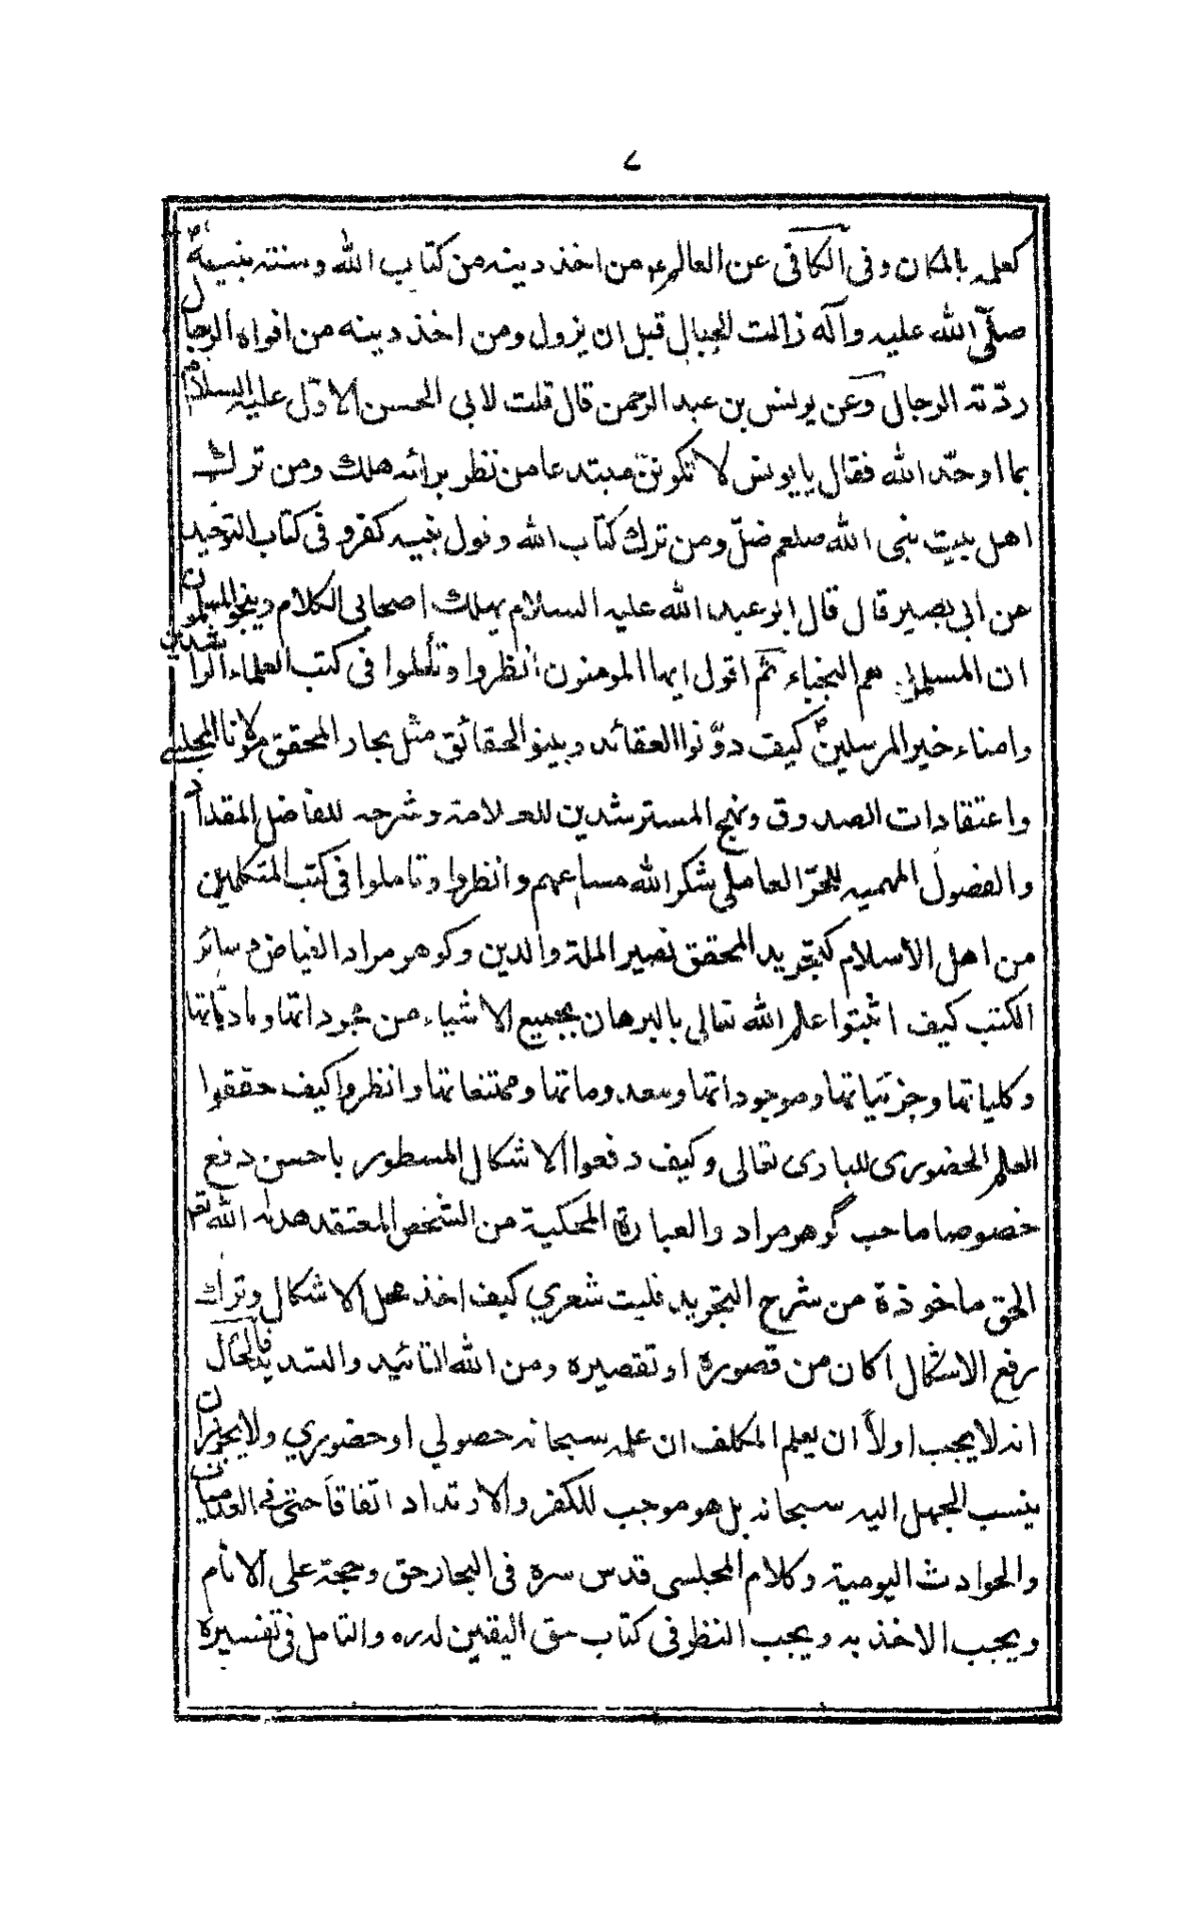 ٧
كعلمه بالمكان وفى الكافى عن العالم ع من اخذ دينه من كتاب الله وسنته بنبيه ص
صلّى الله عليه وآله زالت الجبال قبل ان يزول ومن اخذ دينه من افواه الرجال
ردّته الرجال وعن يونس بن عبد الرحمن قال قلت لابي الحسن الاوّل عليه السلام
بما اوحّد الله فقال يا يونس لا تكوننّ مبتدعا من نظر برائه هلك ومن ترك
اهل بيت نبى الله صلعم ضلّ ومن ترك كتاب الله وقول نبيه كفر وفى كتاب التوحيد
عن ابي بصير قال قال ابو عبد الله عليه السلام يهلك اصحاب الكلام وينجو المسلمون
ان المسلمين هم النجباء ثم اقول ايها المومنون انظروا وتأملوا فى كتب العلماء الراشدين
وامناء خير المرسلين ص كيف دوّنوا العقائد وبينو الحقائق مثل بحار المحقق مولانا المجلسي
واعتقادات الصدوق ونهج المسترشدين للعلامة وشرحه للفاضل المقداد
والفصول المهمية للحرّ العاملي شكر الله مساعيهم وانظروا وتاملوا فى كتب المتكلمين
من اهل الاسلام كتجريد المحقق نصير الملة والدين وكوهر مراد الفياض وسائر
الكتب كيف اثبتوا علم الله تعالى بالبرهان بجميع الاشياء من مجرداتها وماديّاتها
وكلياتها وجزئياتها وموجوداتها ومعدوماتها وممتنعاتها وانظروا كيف حققوا
العلم الحضورى للبارى تعالى وكيف دفعوا الاشكال المسطور باحسن دفع
خصوصا صاحب گوهر مراد والعبارة المحكية من الشخص المعتقد هداه الله تعم
الحق ماخوذة من شرح التجريد فليت شعري كيف اخذ محل الاشكال وترك
رفع الاشكال اكان من قصوره او تقصيره ومن الله التائيد والتسديد فالحال
انه لا يجب اولاً ان يعلم المكلف ان علمه سبحانه حصولي او حضوري ولا يجوز ان
ينسب الجهل اليه سبحانه بل هو موجب للكفر والارتداد اتفاقاً حتى فى العدميات
والحوادث اليومية وكلام المجلسى قدس سره فى البحار حق وحجة على الانام
ويجب الاخذ به ويجب النظر فى كتاب حق اليقين له ره والتامل فى تفسيره